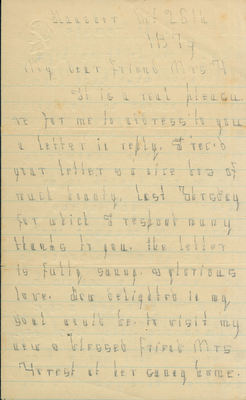 Oct 26th
1879
My dear friend Mrs
It is a real pleasu
re for me to address to you
a letter in reply. I rec'd
your letter & a nice box of
much beauty, last
for which I respond many
thanks to you. the letter
is fully sunny, & glorious
love. How delighted is my
soul would be, to visit my
new & blessed friend Mrs
at her sunny home.